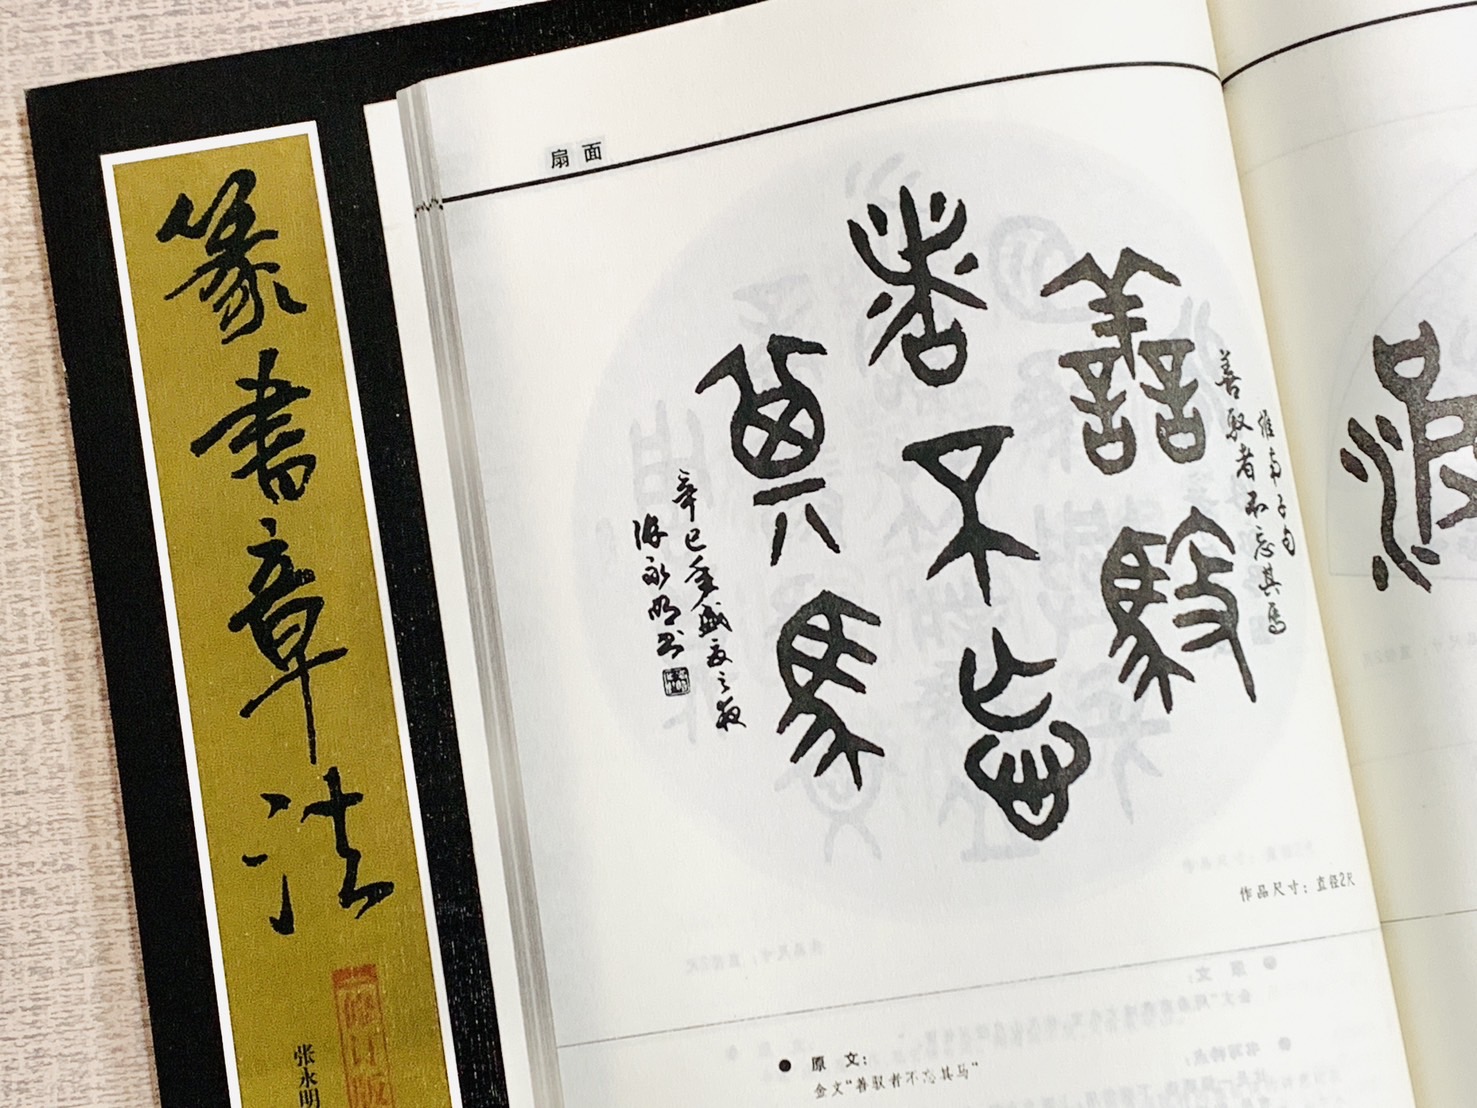 篆书章法
修订版
张永明
扇面
善驭
者不忘
其马
淮南子句
善驭者不忘其马
辛巳年盛夏之夜
张永明书
作品尺寸：直径2尺
● 原 文：
金文“善驭者不忘其马”